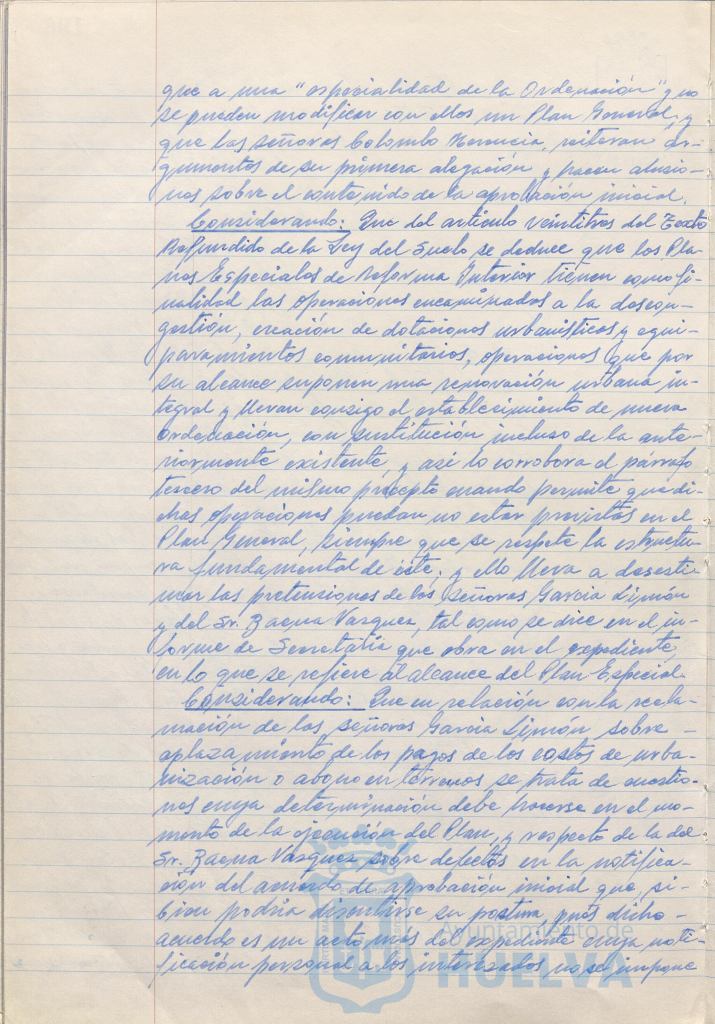 que a una "especialidad de la Ordenación" y no
se pueden modificar con ellos un Plan General, y
que los señores Colombo Herencia, reiteran ar-
gumentos de su primera alegación y hacen alusio-
nes sobre el contenido de la aprobación inicial.
Considerando: Que del artículo veintitres del Texto
Refundido de la Ley del Suelo se deduce que los Pla-
nes Especiales de Reforma Interior tienen como fi-
nalidad las operaciones encaminadas a la descon-
gestión, creación de dotaciones urbanísticos y equi-
paramientos comunitarios, operaciones que por
su alcance suponen una renovación urbana in-
tegral y llevan consigo el establecimiento de nueva
Ordenación, con sustitución incluso de la ante-
riormente existente, y así lo corrobora el párrafo
tercero del mismo precepto cuando permite que di-
chas operaciones puedan no estar previstas en el
Plan General, siempre que se respete la estructu-
ra fundamental de éste; y ello lleva a desesti-
mar las pretensiones de los señores Garcia Limón
y del Sr. Baena Vazquez, tal como se dice en el in-
forme de Secretaría que obra en el expediente,
en lo que se refiere al alcance del Plan Especial.
Considerando: Que en relación con la recla-
mación de los señores Garcia Limón sobre
aplazamiento de los pagos de los costos de urba-
nización o abono en terrenos se trata de cuestio-
nes cuya determinación debe hacerse en el mo-
mento de la ejecución del Plan, y respecto de la del
Sr. Baena Vazquez sobre defectos en la notifica-
ción del acuerdo de aprobación inicial que, si-
bien podría discutirse su postura, pues dicho
acuerdo es un acto más del expediente cuya noti-
ficación personal a los interesados no se impone
Ayuntamiento de
HUELVA